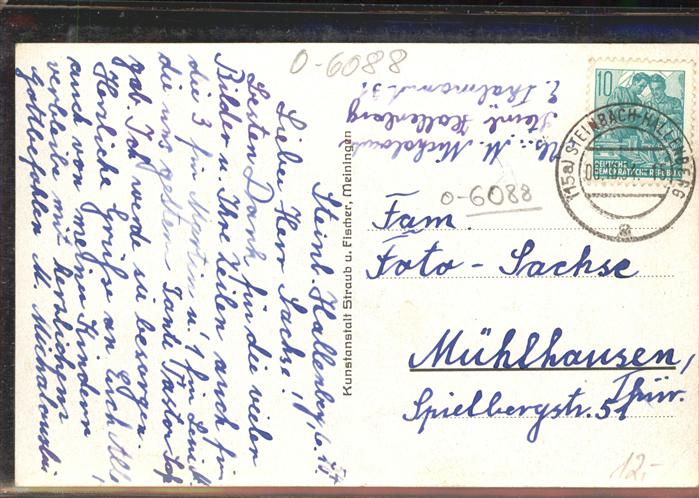 0-6088
Abs.: M. Michalowski
Steinb. Hallenberg
E. Thälmannstr. 3.
0-6088
10
DEUTSCHE
DEMOKRATISCHE REPUBLIK
(15a) STEINBACH-HALLENBERG
a
Fam.
Foto - Sachse
Mühlhausen,
Thür.
Spielbergstr. 51
Kunstanstalt Straub u. Fischer, Meiningen
12,-
Steinb. Hallenberg,
Lieber Herr Sachse!
Besten Dank für die vielen
Bilder u. Ihre Zeilen auch für
die 3 für u. 1 für
die uns Tante Pastor
gab. Ich werde sie besorgen.
Herzliche Grüße an Euch Alle,
auch von meinen Kindern
verbleibe mit herzlichem
Gottbefohlen M. Michalowski.